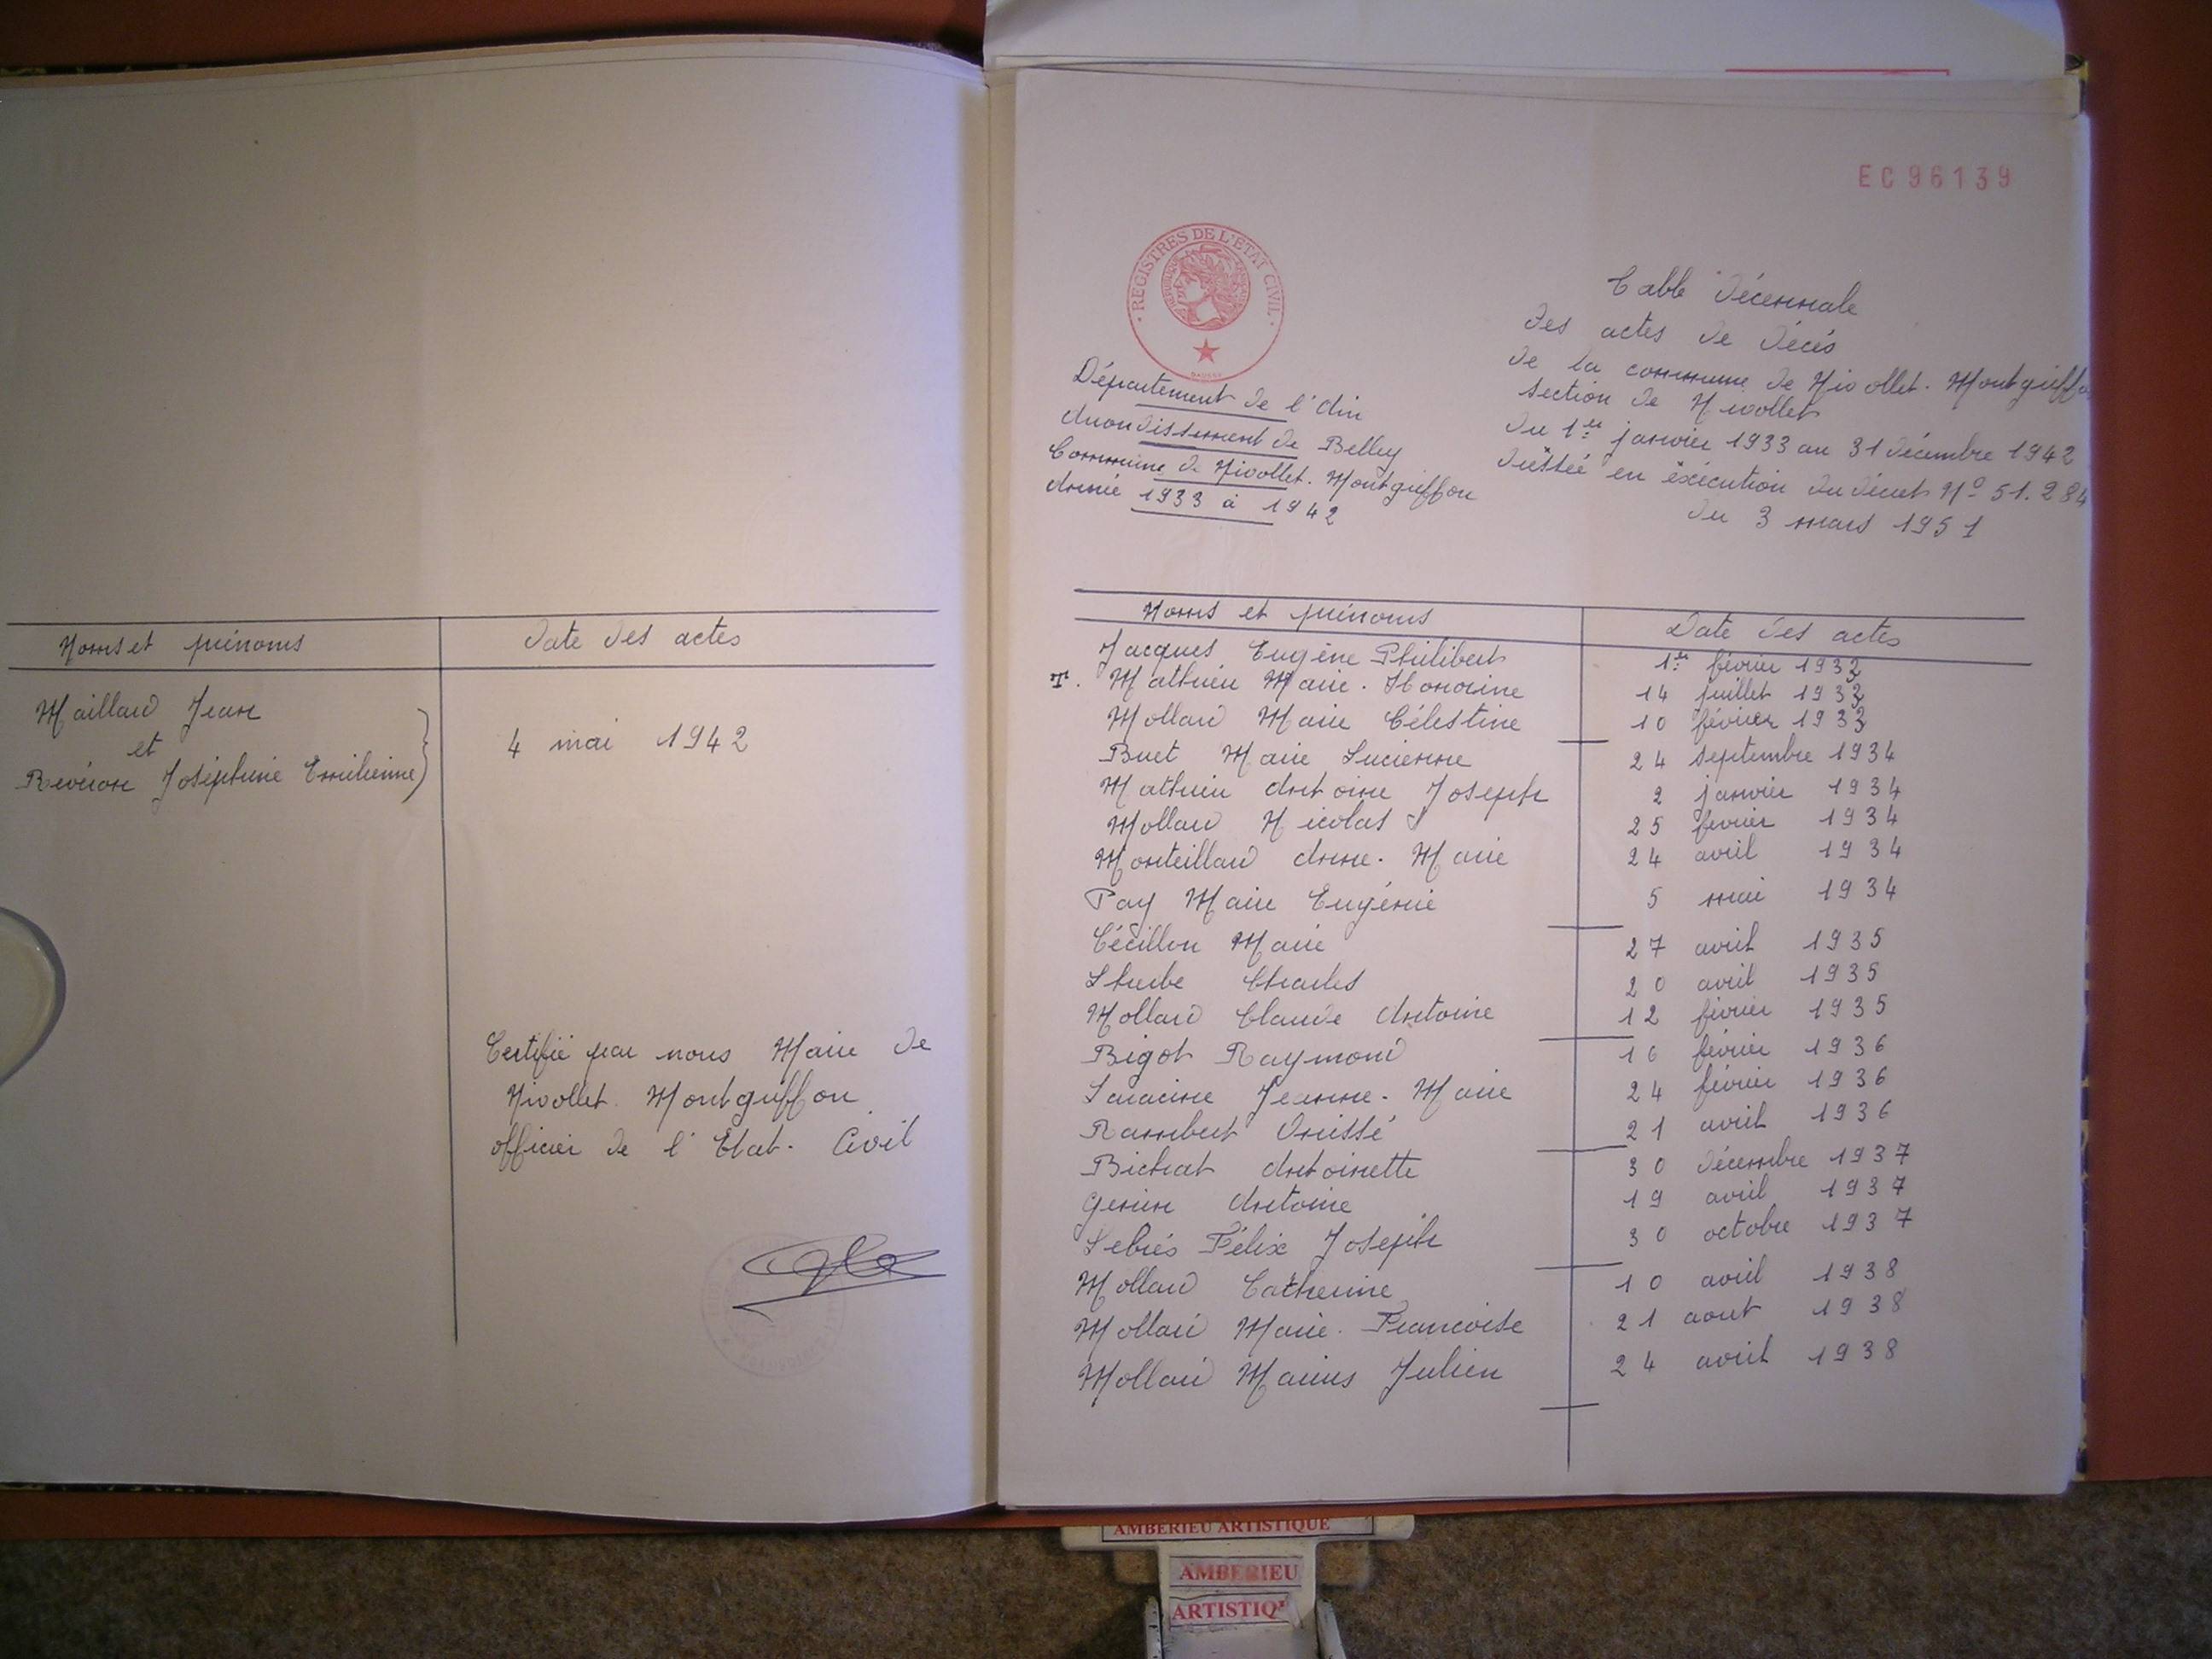 Noms et prénoms Date des actes
Maillard Jean
et
Revéron Joséphine Emilienne
4 mai 1942
Certifié par nous Maire de
Nivollet. Montgriffon
officier de l'Etat-Civil
EC 96139
REGISTRES DE L'ETAT CIVIL
Département de l'Ain
Arrondissement de Belley
Commune de Nivollet. Montgriffon
Année 1933 à 1942
Table Décennale
des actes de Décès
de la commune de Nivollet. Montgriffo
section de Nivollet
du 1er janvier 1933 au 31 décembre 1942
dréssée en éxécution du décret No 51.284
du 3 mars 1951
Noms et prénoms Date des actes
Jacques Eugène Philibert 1er février 1933
T. Mathieu Marie. Honorine 14 juillet 1933
Mollard Marie Célestine 10 février 1933
Buet Marie Lucienne 24 septembre 1934
Mathieu Antoine Joseph 2 janvier 1934
Mollard Nicolas 25 février 1934
Monteillard Anne. Marie 24 avril 1934
Pay Marie Eugénie 5 mai 1934
Cécillon Marie 27 avril 1935
Charles 20 avril 1935
Mollard Claude Antoine 12 février 1935
Bigot Raymond 16 février 1936
Saracine Jeanne. Marie 24 février 1936
Rambert 21 avril 1936
Bichat Antoinette 30 décembre 1937
Genin Antoine 19 avril 1937
Lebrés Félix Joseph 30 octobre 1937
Mollard Catherine 10 avril 1938
Mollard Marie. Francoise 21 aout 1938
Mollard Marius Julien 24 avril 1938
AMBERIEU ARTISTIQUE
AMBERIEU
ARTISTIQ